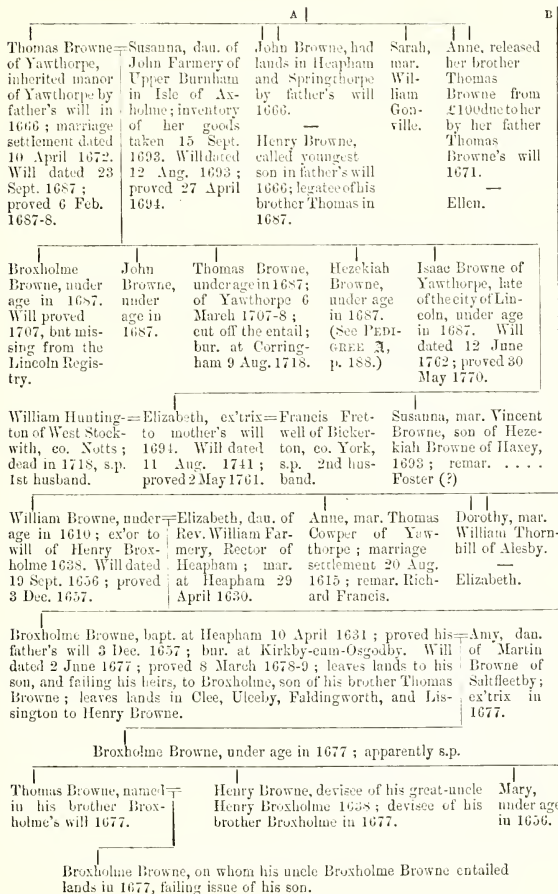 A
B
Thomas Browne=
of Yawthorpe,
inherited manor
of Yawthorpe by
father's will in
1666 ; marriage
settlement dated
10 April 1672.
Will dated 23
Sept. 1687 ;
proved 6 Feb.
1687-8.
Susanna, dau. of
John Farmery of
Upper Burnham
in Isle of Ax-
holme ; inventory
of her goods
taken 15 Sept.
1693. Will dated
12 Aug. 1693 ;
proved 27 April
1694.
John Browne, had
lands in Heapham
and Springthorpe
by father's will
1666.
—
Henry Browne,
called youngest
son in father's will
1666; legatee of his
brother Thomas in
1687.
Sarah,
mar.
Wil-
liam
Gon-
ville.
Anne, released
her brother
Thomas
Browne from
£100 due to her
by her father
Thomas
Browne's will
1671.
—
Ellen.
Broxholme
Browne, under
age in 1687.
Will proved
1707, but mis-
sing from the
Lincoln Regis-
try.
John
Browne,
under
age in
1687.
Thomas Browne,
under age in 1687;
of Yawthorpe 6
March 1707-8 ;
cut off the entail;
bur. at Corring-
ham 9 Aug. 1718.
Hezekiah
Browne,
under age
in 1687.
(See PEDI-
GREE A,
p. 188.)
Isaac Browne of
Yawthorpe, late
of the city of Lin-
coln, under age
in 1687. Will
dated 12 June
1762 ; proved 30
May 1770.
William Hunting-=
ton of West Stock-
with, co. Notts ;
dead in 1718, s.p.
1st husband.
Elizabeth, ex'trix=
to mother's will
1694. Will dated
11 Aug. 1741 ;
proved 2 May 1761.
Francis Fret-
well of Bicker-
ton, co. York,
s.p. 2nd hus-
band.
Susanna, mar. Vincent
Browne, son of Heze-
kiah Browne of Haxey,
1693 ; remar. . . . .
Foster (?)
William Browne, under=
age in 1610 ; ex'or to
will of Henry Brox-
holme 1638. Will dated
19 Sept. 1656 ; proved
3 Dec. 1657.
Elizabeth, dau. of
Rev. William Far-
mery, Rector of
Heapham ; mar.
at Heapham 29
April 1630.
Anne, mar. Thomas
Cowper of Yaw-
thorpe ; marriage
settlement 20 Aug.
1615 ; remar. Rich-
ard Francis.
Dorothy, mar.
William Thorn-
hill of Alesby.
—
Elizabeth.
Broxholme Browne, bapt. at Heapham 10 April 1631 ; proved his=
father's will 3 Dec. 1657 ; bur. at Kirkby-cum-Osgodby. Will
dated 2 June 1677 ; proved 8 March 1678-9 ; leaves lands to his
son, and failing his heirs, to Broxholme, son of his brother Thomas
Browne ; leaves lands in Clee, Ulceby, Faldingworth, and Lis-
sington to Henry Browne.
Amy, dau.
of Martin
Browne of
Saltfleetby ;
ex'trix in
1677.
Broxholme Browne, under age in 1677 ; apparently s.p.
Thomas Browne, named=
in his brother Brox-
holme's will 1677.
Henry Browne, devisee of his great-uncle
Henry Broxholme 1638 ; devisee of his
brother Broxholme in 1677.
Mary,
under age
in 1656.
Broxholme Browne, on whom his uncle Broxholme Browne entailed
lands in 1677, failing issue of his son.